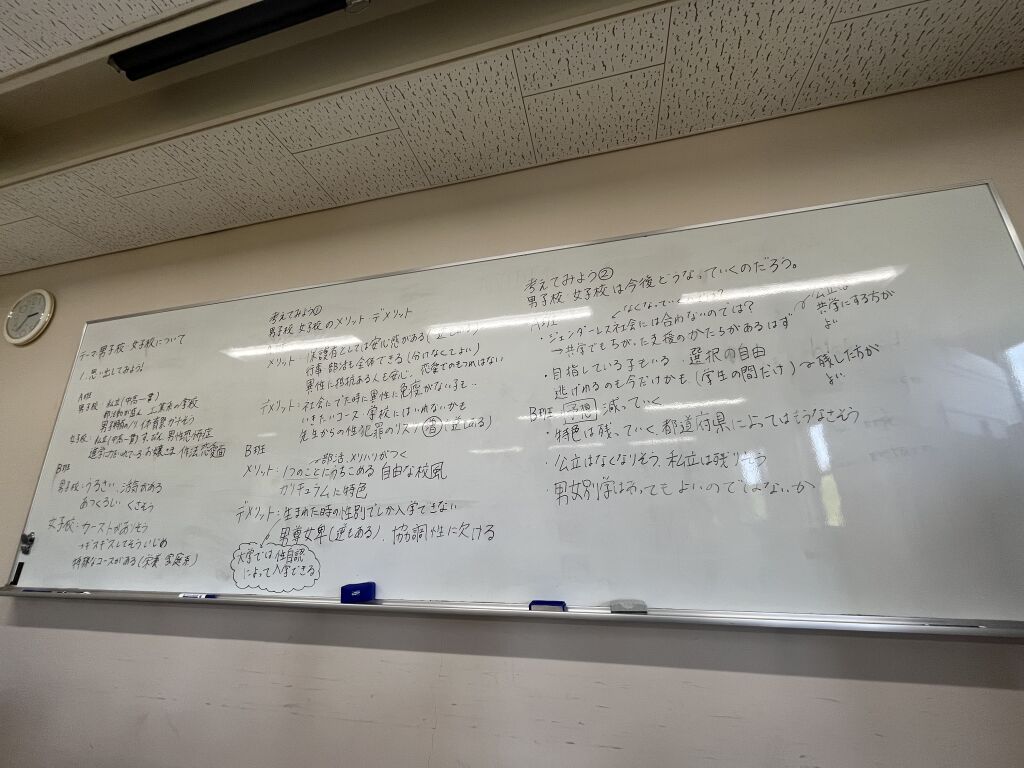 テーマ 男子校・女子校について
1. 思い出してみよう!
A班
男子校・私立(中高一貫)
工業系の学校
女子校・私立(中高一貫)
男性恐怖症
お嬢さま 作法 恋愛面
B班
男子校・うるさい、活気がある
あつくるしい くさそう
女子校・カーストがありそう
→ギスギスしてそう いじめ
特殊なコースがある(栄養 家庭系)
考えてみよう①
男子校 女子校のメリット デメリット
メリット・保護者としては安心感がある
行事 部活も全体でできる(分けなくてよい)
異性に抵抗ある人も安心、恋愛でのもつれはない
デメリット・社会にでた時に異性に免疫がない子も…
いきたいコース 学校にはいれないかも
先生からの性犯罪のリスク
B班
部活、メリハリがつく
メリット・1つのことにうちこめる 自由な校風
カリキュラムに特色
デメリット・生まれた時の性別でしか入学できない
男尊女卑(逆もある)、協調性に欠ける
大学では性自認
によって入学できる
考えてみよう②
男子校 女子校は今後どうなっていくのだろう。
A班
・ジェンダーレス社会には合わないのでは?
→共学でもちがった支援のかたちがあるはず
公立は
共学にする方が
よい
・目指している子もいる 選択の自由
逃げれるのも今だけかも(学生の間だけ)→残した方が
よい
B班 予想 減っていく
・特色は残っていく 都道府県によってはもうなさそう
・公立はなくなりそう、私立は残りそう
・男女別学はあってもよいのではないか